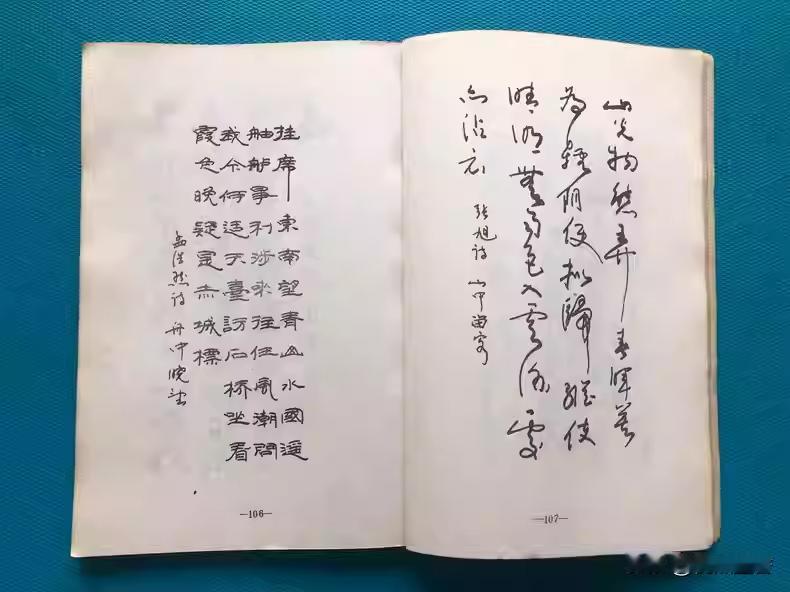 挂席東南望青山水國遥
舳舻爭利涉來往任風潮問
我今何适天臺訪石桥坐看
霞色晚疑是赤城標
孟浩然诗 舟中晓望
—106—
山光物態弄春晖莫
为轻阴便拟歸縱使
晴明無雨色入雲深處
亦沾衣
张旭诗 山中留客
—107—